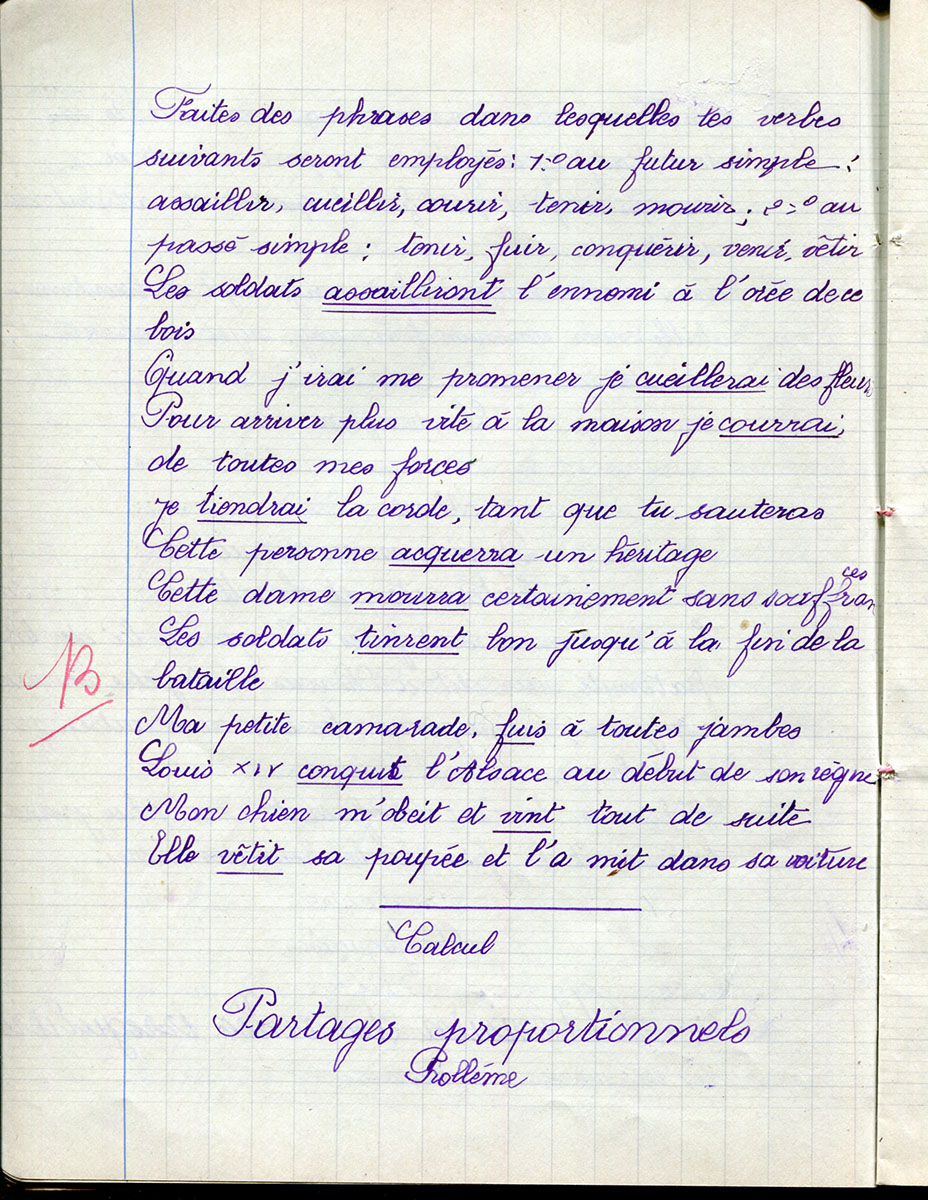 Faites des phrases dans lesquelles les verbes
suivants seront employés : 1.º au futur simple :
assaillir, cueillir, courir, tenir, mourir ; 2=º au
passé simple ; tenir, fuir, conquérir, venir, vêtir
Les soldats assailliront l'ennemi à l'orée de ce
bois
Quand j'irai me promener je cueillerai des fleurs
Pour arriver plus vite à la maison je courrai,
de toutes mes forces
Je tiendrai la corde, tant que tu sauteras
Cette personne acquerra un héritage
Cette dame mourra certainement sans souffrances
Les soldats tinrent bon jusqu'à la fin de la
bataille
Ma petite camarade, fuis à toutes jambes
Louis XIV conquit l'Alsace au début de son règne
Mon chien m'obeit et vint tout de suite
Elle vêtit sa poupée et l'a mit dans sa voiture
Calcul
Partages proportionnels
Problème